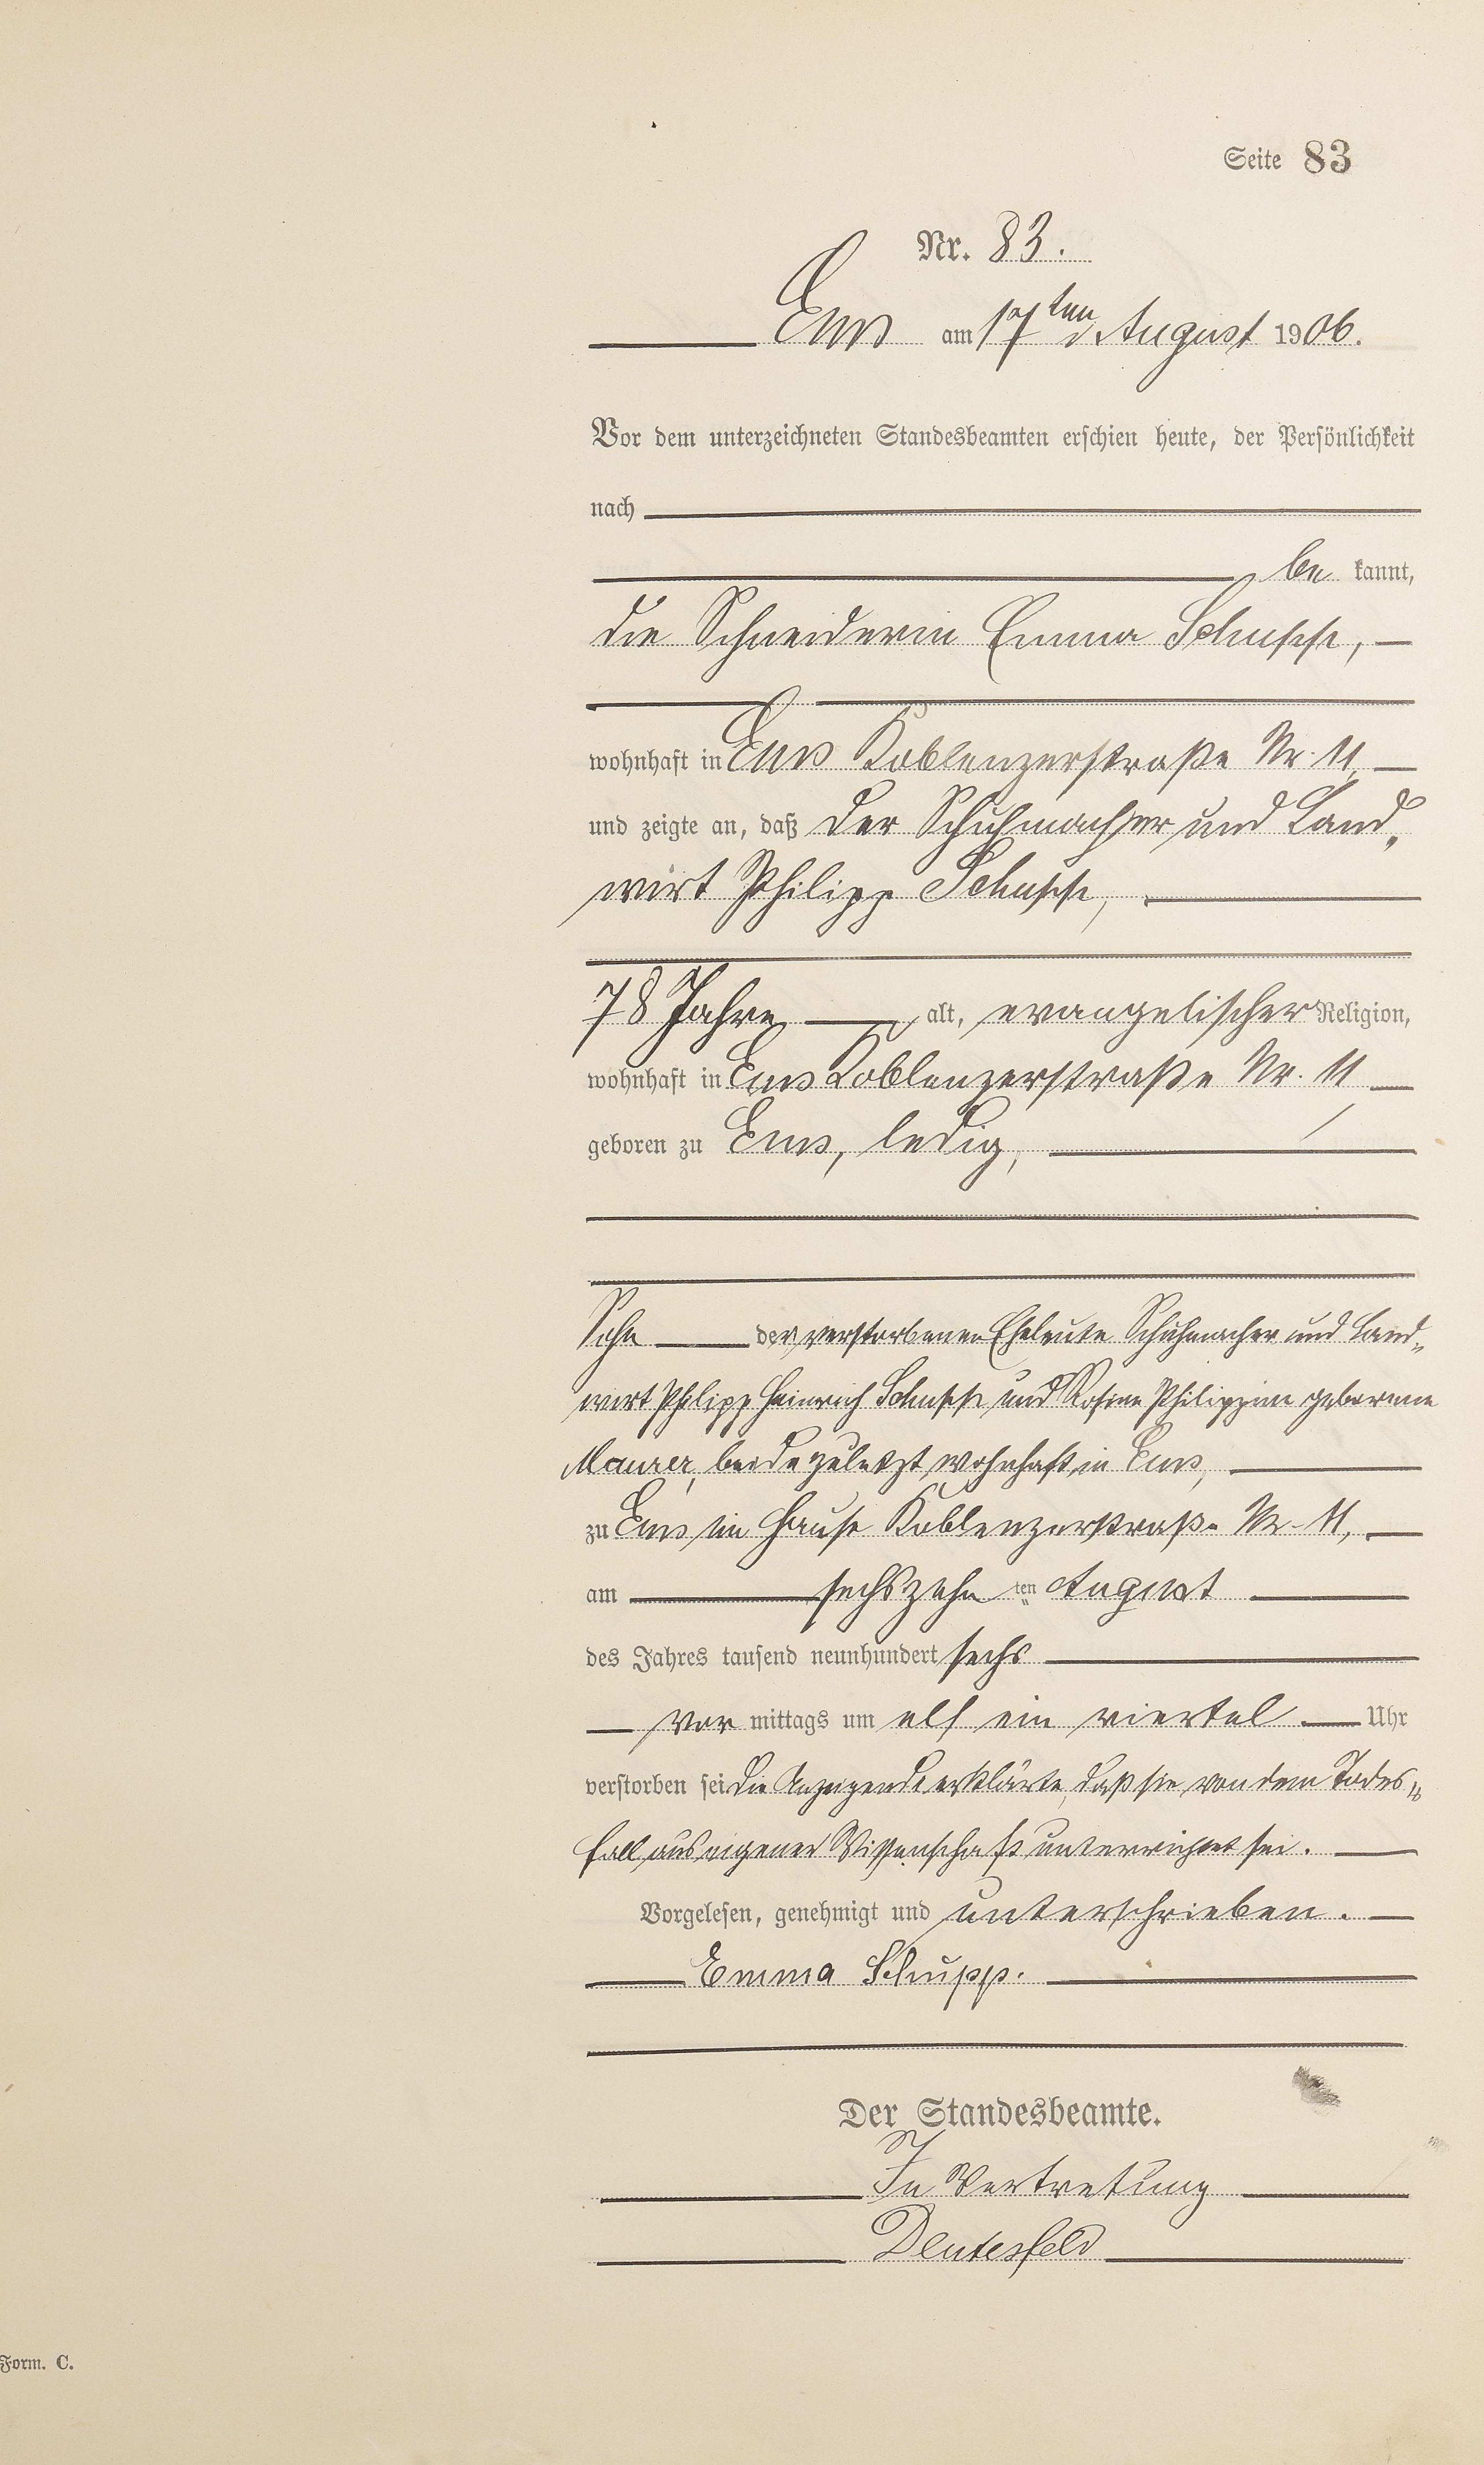 Seite 83
Nr. 83.
Ems am 17ten August 1906.
Vor dem unterzeichneten Standesbeamten erschien heute, der Persönlichkeit
nach
be kannt,
die Schneiderin Emma Schupp,
wohnhaft in Ems Koblenzerstraße Nr. 11,
und zeigte an, daß der Schuhmacher und Land„
wirt Philipp Schupp,
78 Jahre alt, evangelischer Religion,
wohnhaft in Ems Koblenzerstraße Nr. 11
geboren zu Ems, ledig,
Sohn der verstorbenen Eheleute Schuhmacher und Land„
wirt Philipp Heinrich Schupp und Rosine Philippine geborene
Maurer, beide zuletzt wohnhaft in Ems,
zu Ems im Hause Koblenzerstraße Nr. 11,
am sechszehn ten August
des Jahres tausend neunhundert sechs
vor mittags um elf ein viertel Uhr
verstorben sei. Die Anzeigende erklärte, daß sie von dem Todes„
fall aus eigener Wissenschaft unterrichtet sei.
Vorgelesen, genehmigt und unterschrieben.
Emma Schupp.
Der Standesbeamte.
In Vertretung
Deutesfeld
Form. C.